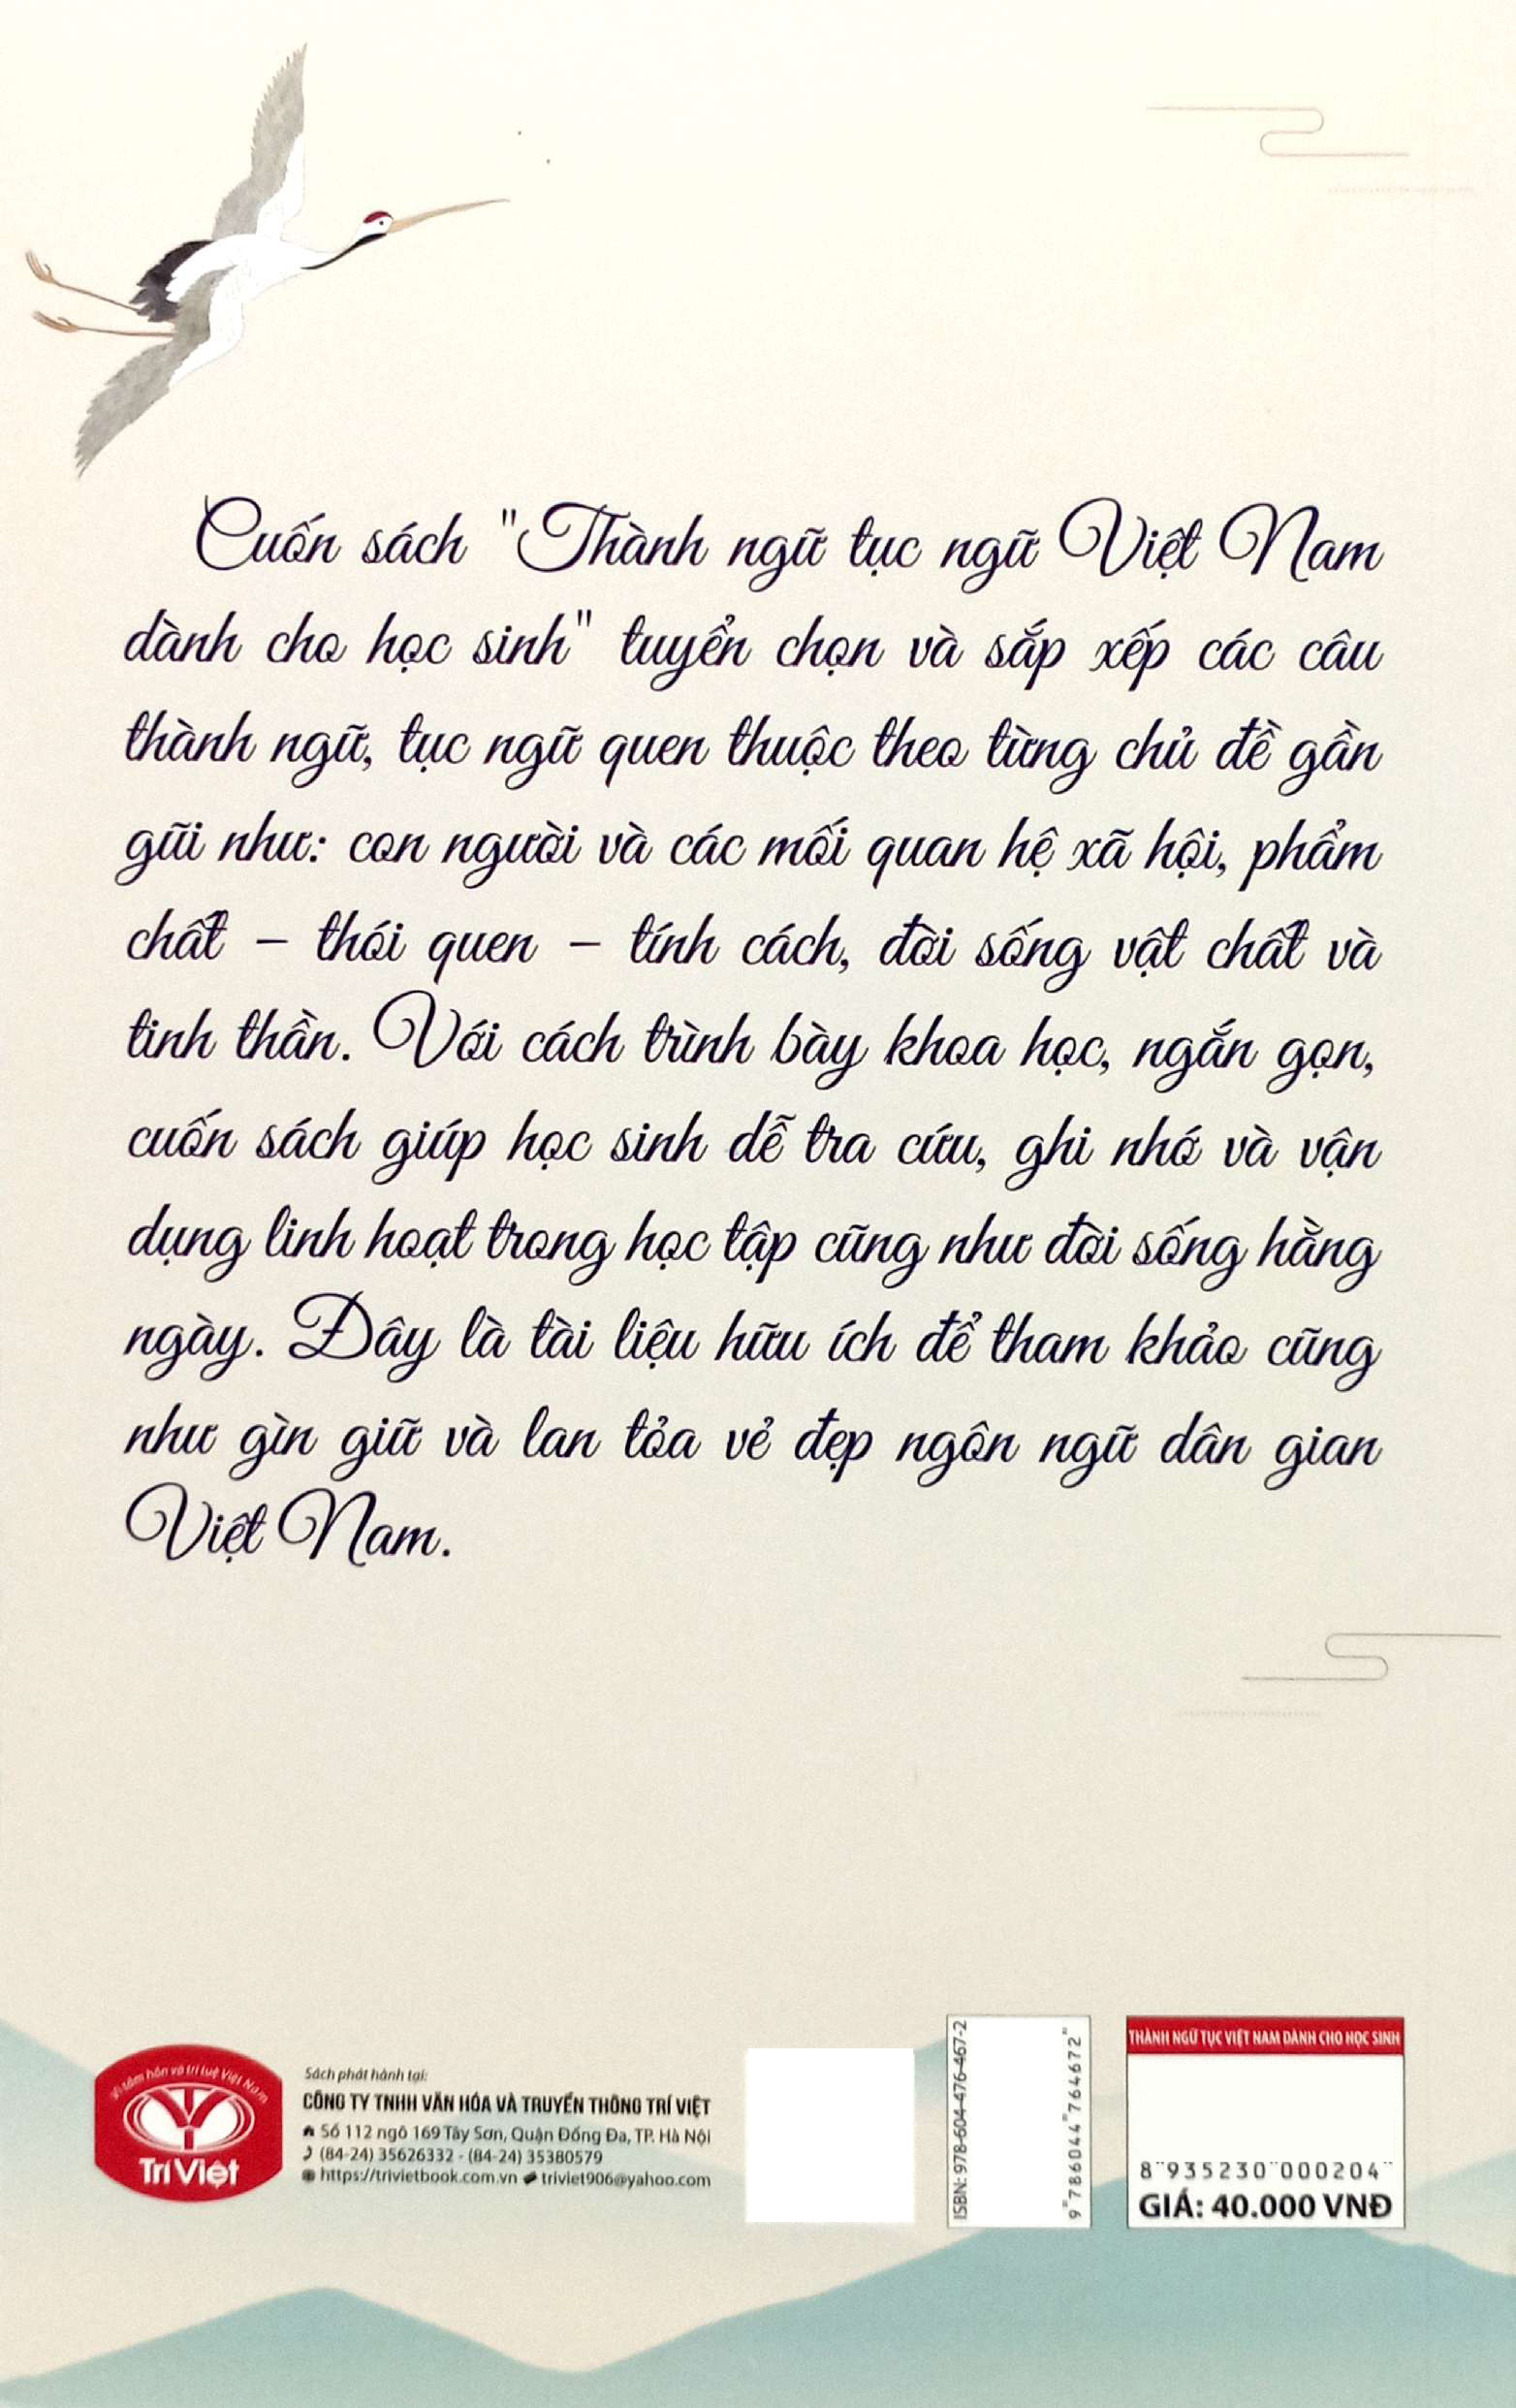 Cuốn sách "Thành ngữ tục ngữ Việt Nam
dành cho học sinh" tuyển chọn và sắp xếp các câu
thành ngữ, tục ngữ quen thuộc theo từng chủ đề gần
gũi như: con người và các mối quan hệ xã hội, phẩm
chất – thói quen – tính cách, đời sống vật chất và
tinh thần. Với cách trình bày khoa học, ngắn gọn,
cuốn sách giúp học sinh dễ tra cứu, ghi nhớ và vận
dụng linh hoạt trong học tập cũng như đời sống hằng
ngày. Đây là tài liệu hữu ích để tham khảo cũng
như gìn giữ và lan tỏa vẻ đẹp ngôn ngữ dân gian
Việt Nam.
Vì tâm hồn và trí tuệ Việt Nam
Trí Việt
Sách phát hành tại:
CÔNG TY TNHH VĂN HÓA VÀ TRUYỀN THÔNG TRÍ VIỆT
Số 112 ngõ 169 Tây Sơn, Quận Đống Đa, TP. Hà Nội
(84-24) 35626332 - (84-24) 35380579
https://trivietbook.com.vn triviet906@yahoo.com
ISBN: 978-604-476-467-2
9 786044 764672
THÀNH NGỮ TỤC VIỆT NAM DÀNH CHO HỌC SINH
8 935230 000204
GIÁ: 40.000 VNĐ